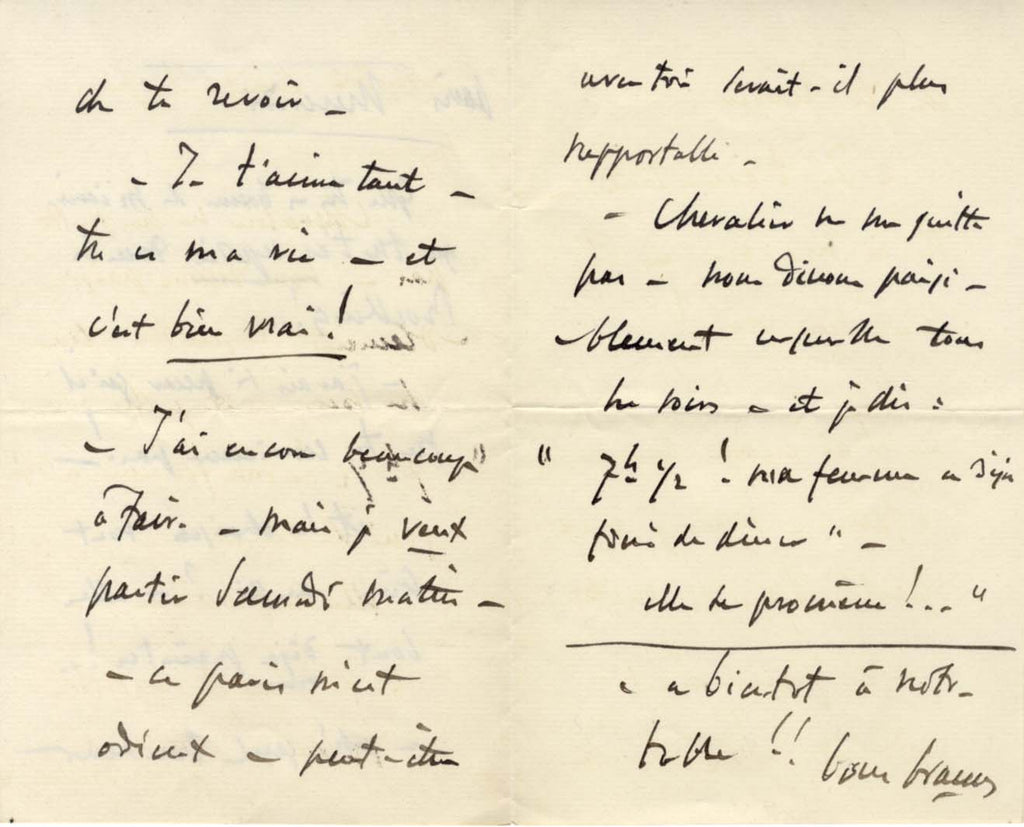 de te revoir -
- Je t'aime tant -
tu es ma vie - et
c'est bien vrai !
- J'ai encore beaucoup
à faire - mais je veux
partir Samedi matin -
- ce paris m'est
odieux - peut-être
avec toi serait-il plus
supportable -
- Chevalier ne me quitte
pas - nous dînons paisi-
-blement ensemble tous
les soirs - et je dis :
" 7h 1/2 ! ma femme a déjà
fini de dîner " -
elle se promène !... "
- a bientot à notre
table !!